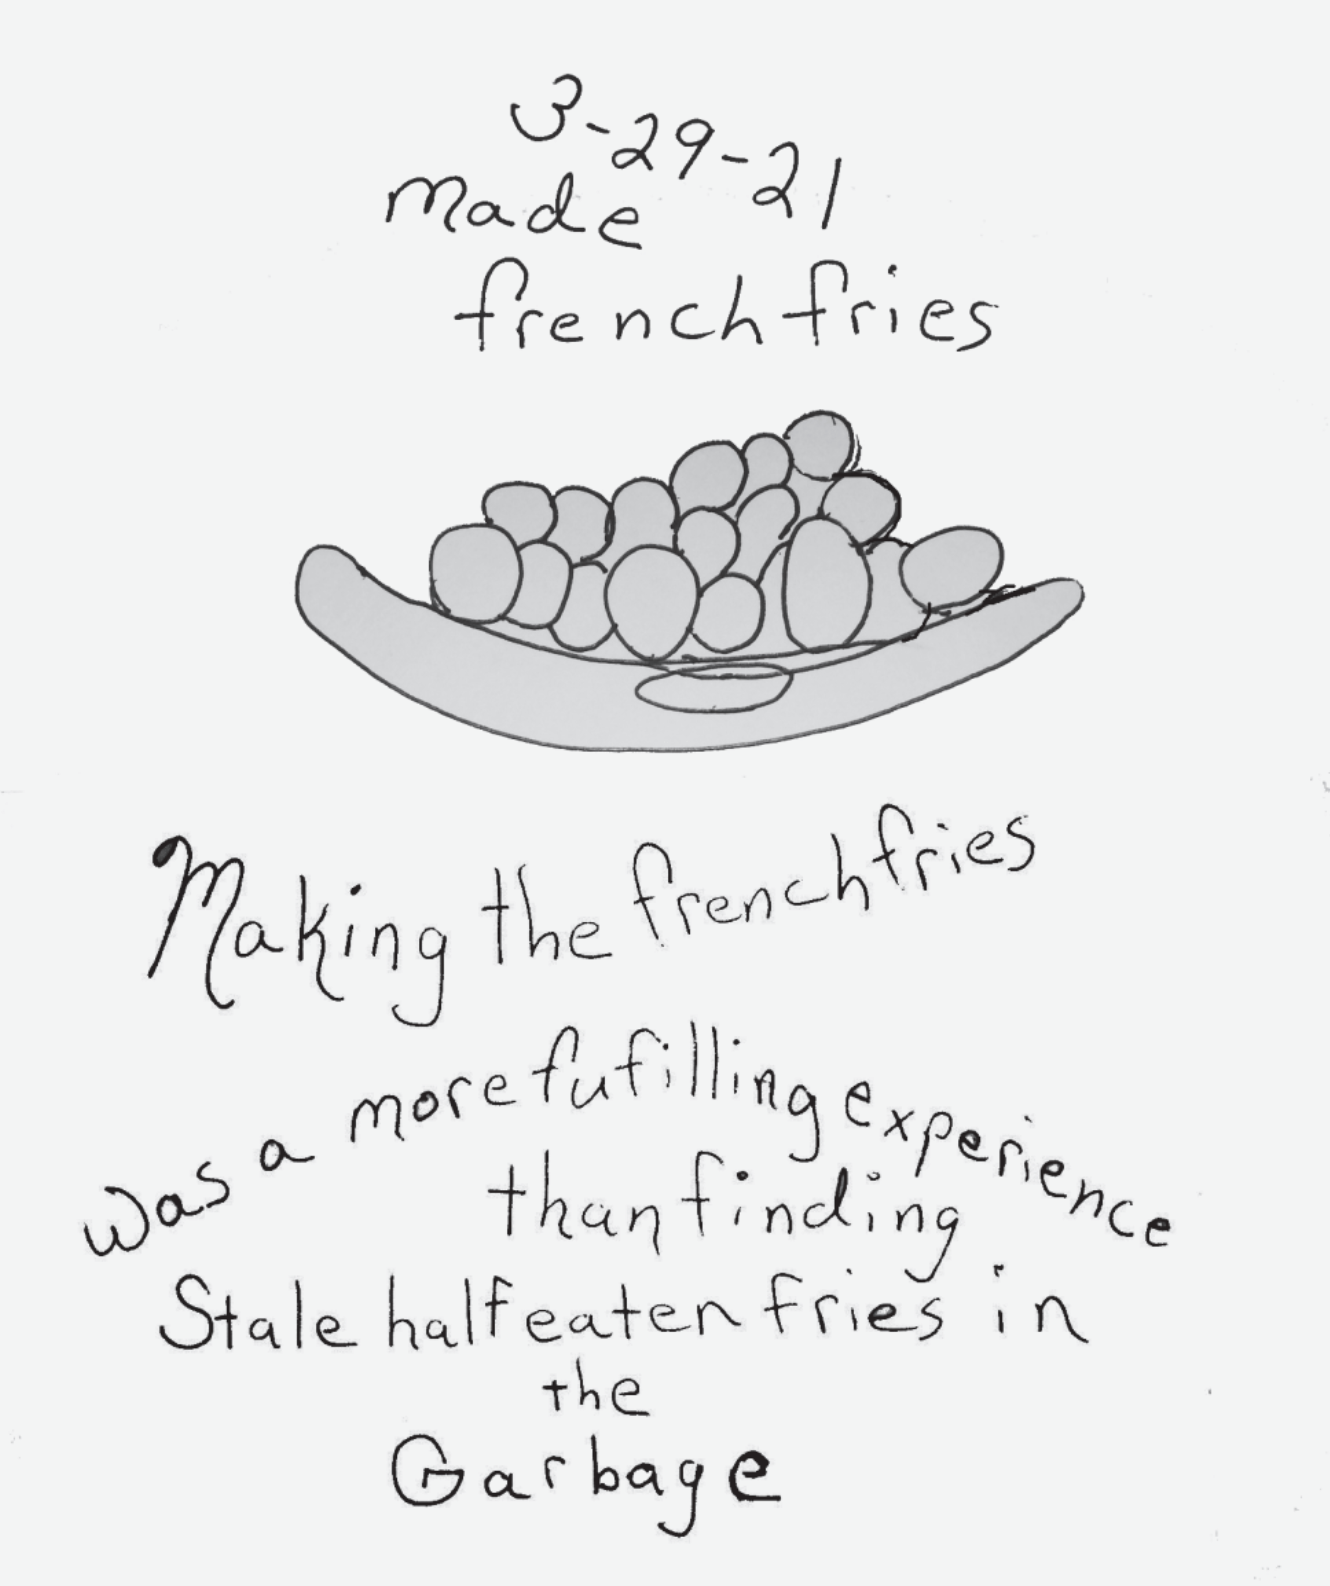 3-29-21
made
french fries
Making the french fries
was a more fufilling experience
than finding
Stale half eaten fries in
the
Garbage